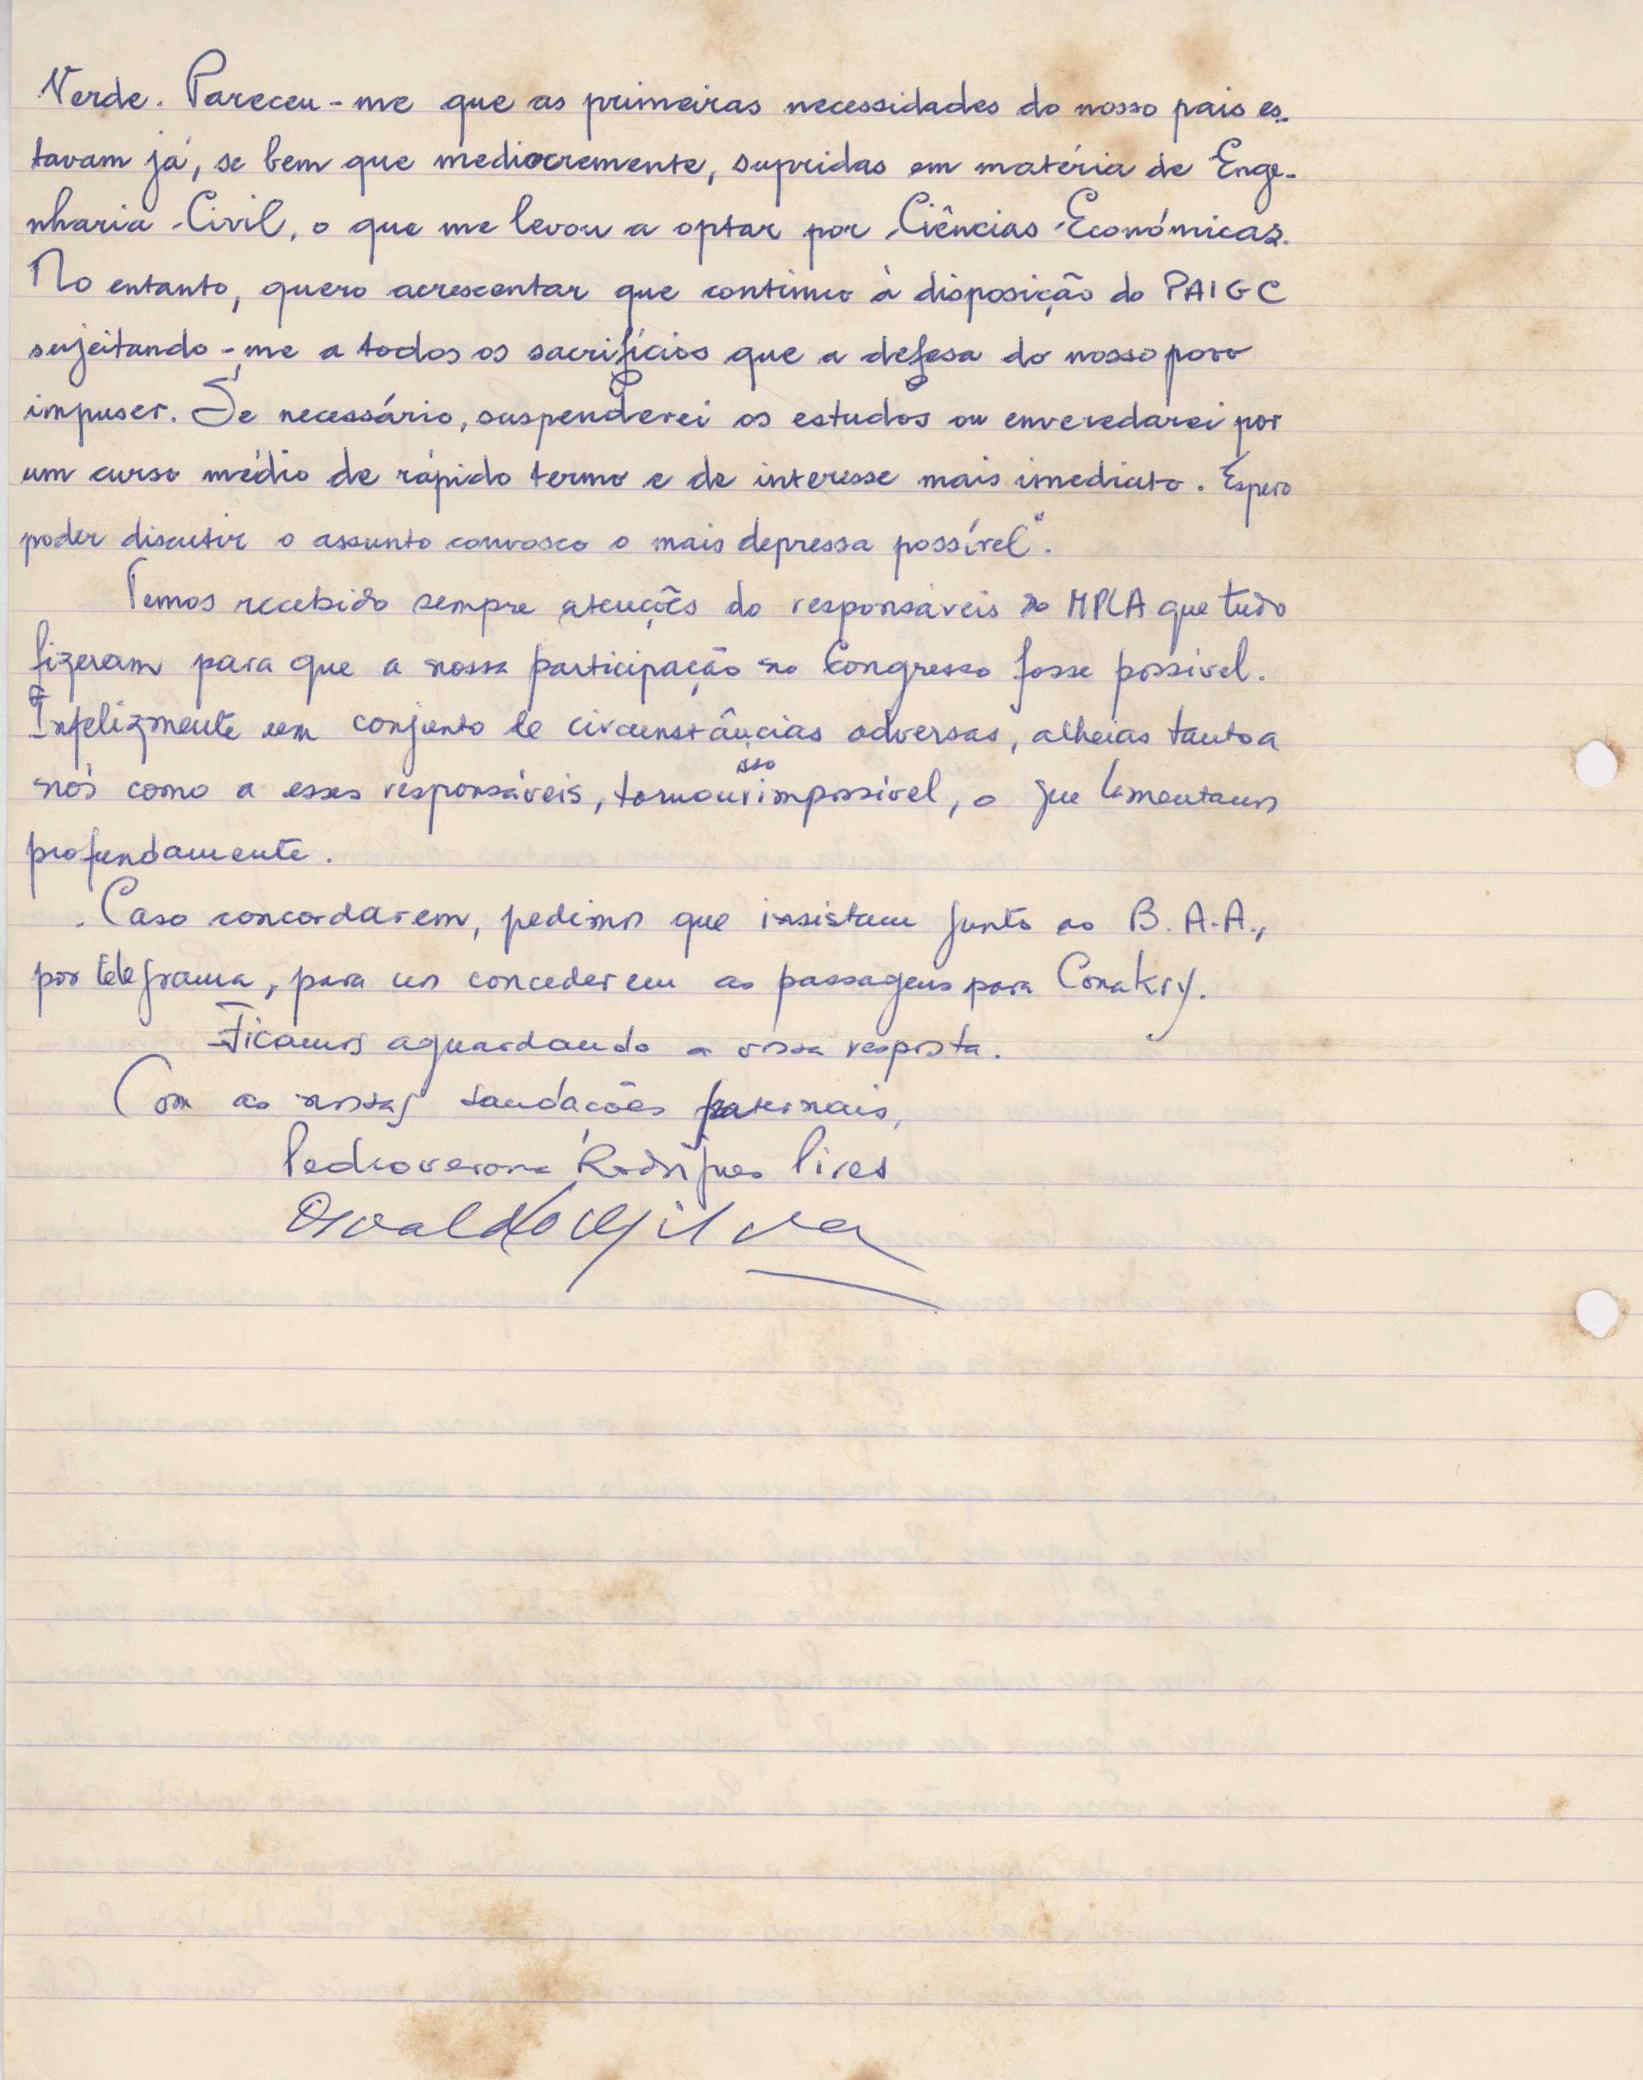 Verde. Pareceu-me que as primeiras necessidades do nosso pais es-
tavam já, se bem que mediocremente, supridas em matéria de Enge-
nharia Civil, o que me levou a optar por Ciências Económicas.
No entanto, quero acrescentar que continuo à disposição do PAIGC
sujeitando-me a todos os sacrifícios que a defesa do nosso povo
impuser. Se necessário, suspenderei os estudos ou enveredarei por
um curso médio de rápido termo e de interesse mais imediato. Espero
poder discutir o assunto convosco o mais depressa possível".
Temos recebido sempre atenções do responsáveis do MPLA que tudo
fizeram para que a nossa participação no Congresso fosse possivel.
Infelizmente um conjunto de circunstâncias adversas, alheias tanto a
nós como a esses responsáveis, tornou isso impossível, o que lamentamos
profundamente.
Caso concordarem, pedimos que insistam junto ao B.A.A.,
por telegrama, para nos concederem as passagens para Conakry.
Ficamos aguardando a vossa resposta.
Com as nossas saudações fraternais,
Pedro Verona Rodrigues Pires
Osvaldo Silva